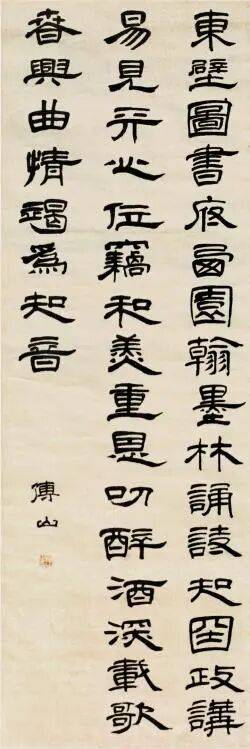 東壁圖書府西園翰墨林誦詩知囯政講
易見天心位竊和羹重恩叨醉酒深載歌
春興曲情竭爲知音
傅山